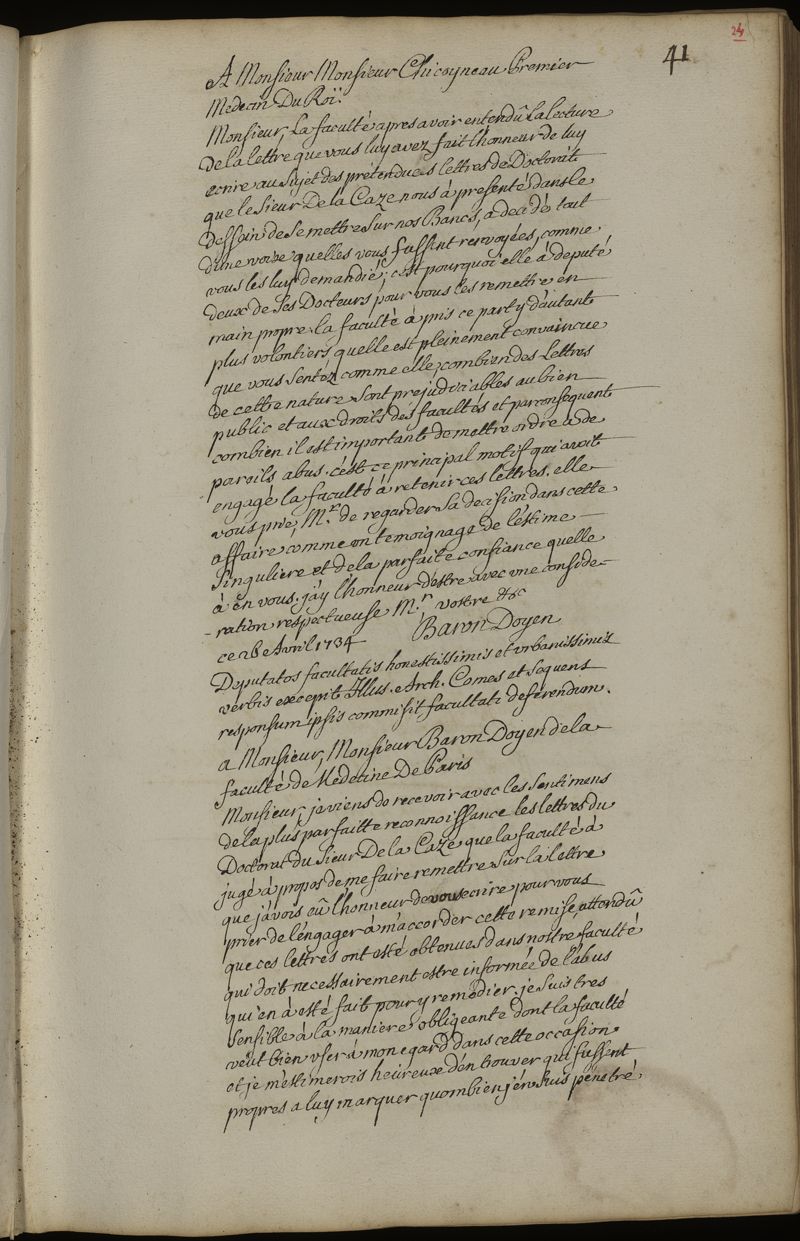 24
41
A Monsieur Monsieur Chicoyneau Premier
Medecin Du Roï.
Monsieur, La faculté apres avoir entendû La lecture
De la lettre que vous luy avez fait l'honneur de luy
ecrire au Sujet des prétendues lettres de Doctorat
que le Sieur De la Caze nous à presenté dans le
dessein de Se mettre Sur nos Bancs, a decidé tout
d'une voix quelles vous fussent renvoyées, comme
vous les luy demandié; c'est pourquoi elle à deputé
deux de Ses Docteurs pour vous les remettre en
main propre. la faculté à pris ce party d'autant
plus volontiers quelle est pleinement convaincue
que vous Sentéz comme elle, combien des Lettres
de cette nature Sont prejudiciables au bien
public et aux droits des facultés et par consequent
combien il est important de mettre ordre a de
pareils abus. c'est ce principal motif qui avoit
engagé la faculté à retenir ces lettres. elle
vous prie, M.r de regarder Sa decision dans cette
affaire comme un temoignage de l'éstime
Singuliere et de la parfaite confiance quelle
à en vous. j'ay l'honneur d'estre avec une conside-
-ration respectueuse M.r vostre &c
ce 26 Avril 1734 Baron Doyen
Deputatos facultatis honestissimis et urbanissimis
verbis excepit Illus. Arch. Comes et Sequens
responsum ipsis commisit facultati deferendum.
a Monsieur, Monsieur Baron Doyen de la
faculté de Medecine De Paris
Monsieur, je viens de recevoir avec les Sentimens
de la plus parfaitte reconnoissance les lettres du
Doctorat du Sieur De la Caze que la faculté à
jugé à propos de me faire remettre Sur la lettre
que j'avois eû l'honneur de vous ecrire pour vous
prier de l'engager à m'accorder cette remise, attendû
que ces lettres ont esté obtenues dans nostre faculté
qui doit necessairement estre informée de l'abus
qu'en à esté fait pour y remedier. je Suis tres
Sensible à la maniere obligeante dont la faculté
veut bien user à mon egard dans cette occasion
et je m'estimerois heureux d'en trouver qui fussent
propres a luy marquer quombien j'en Suis penetré.